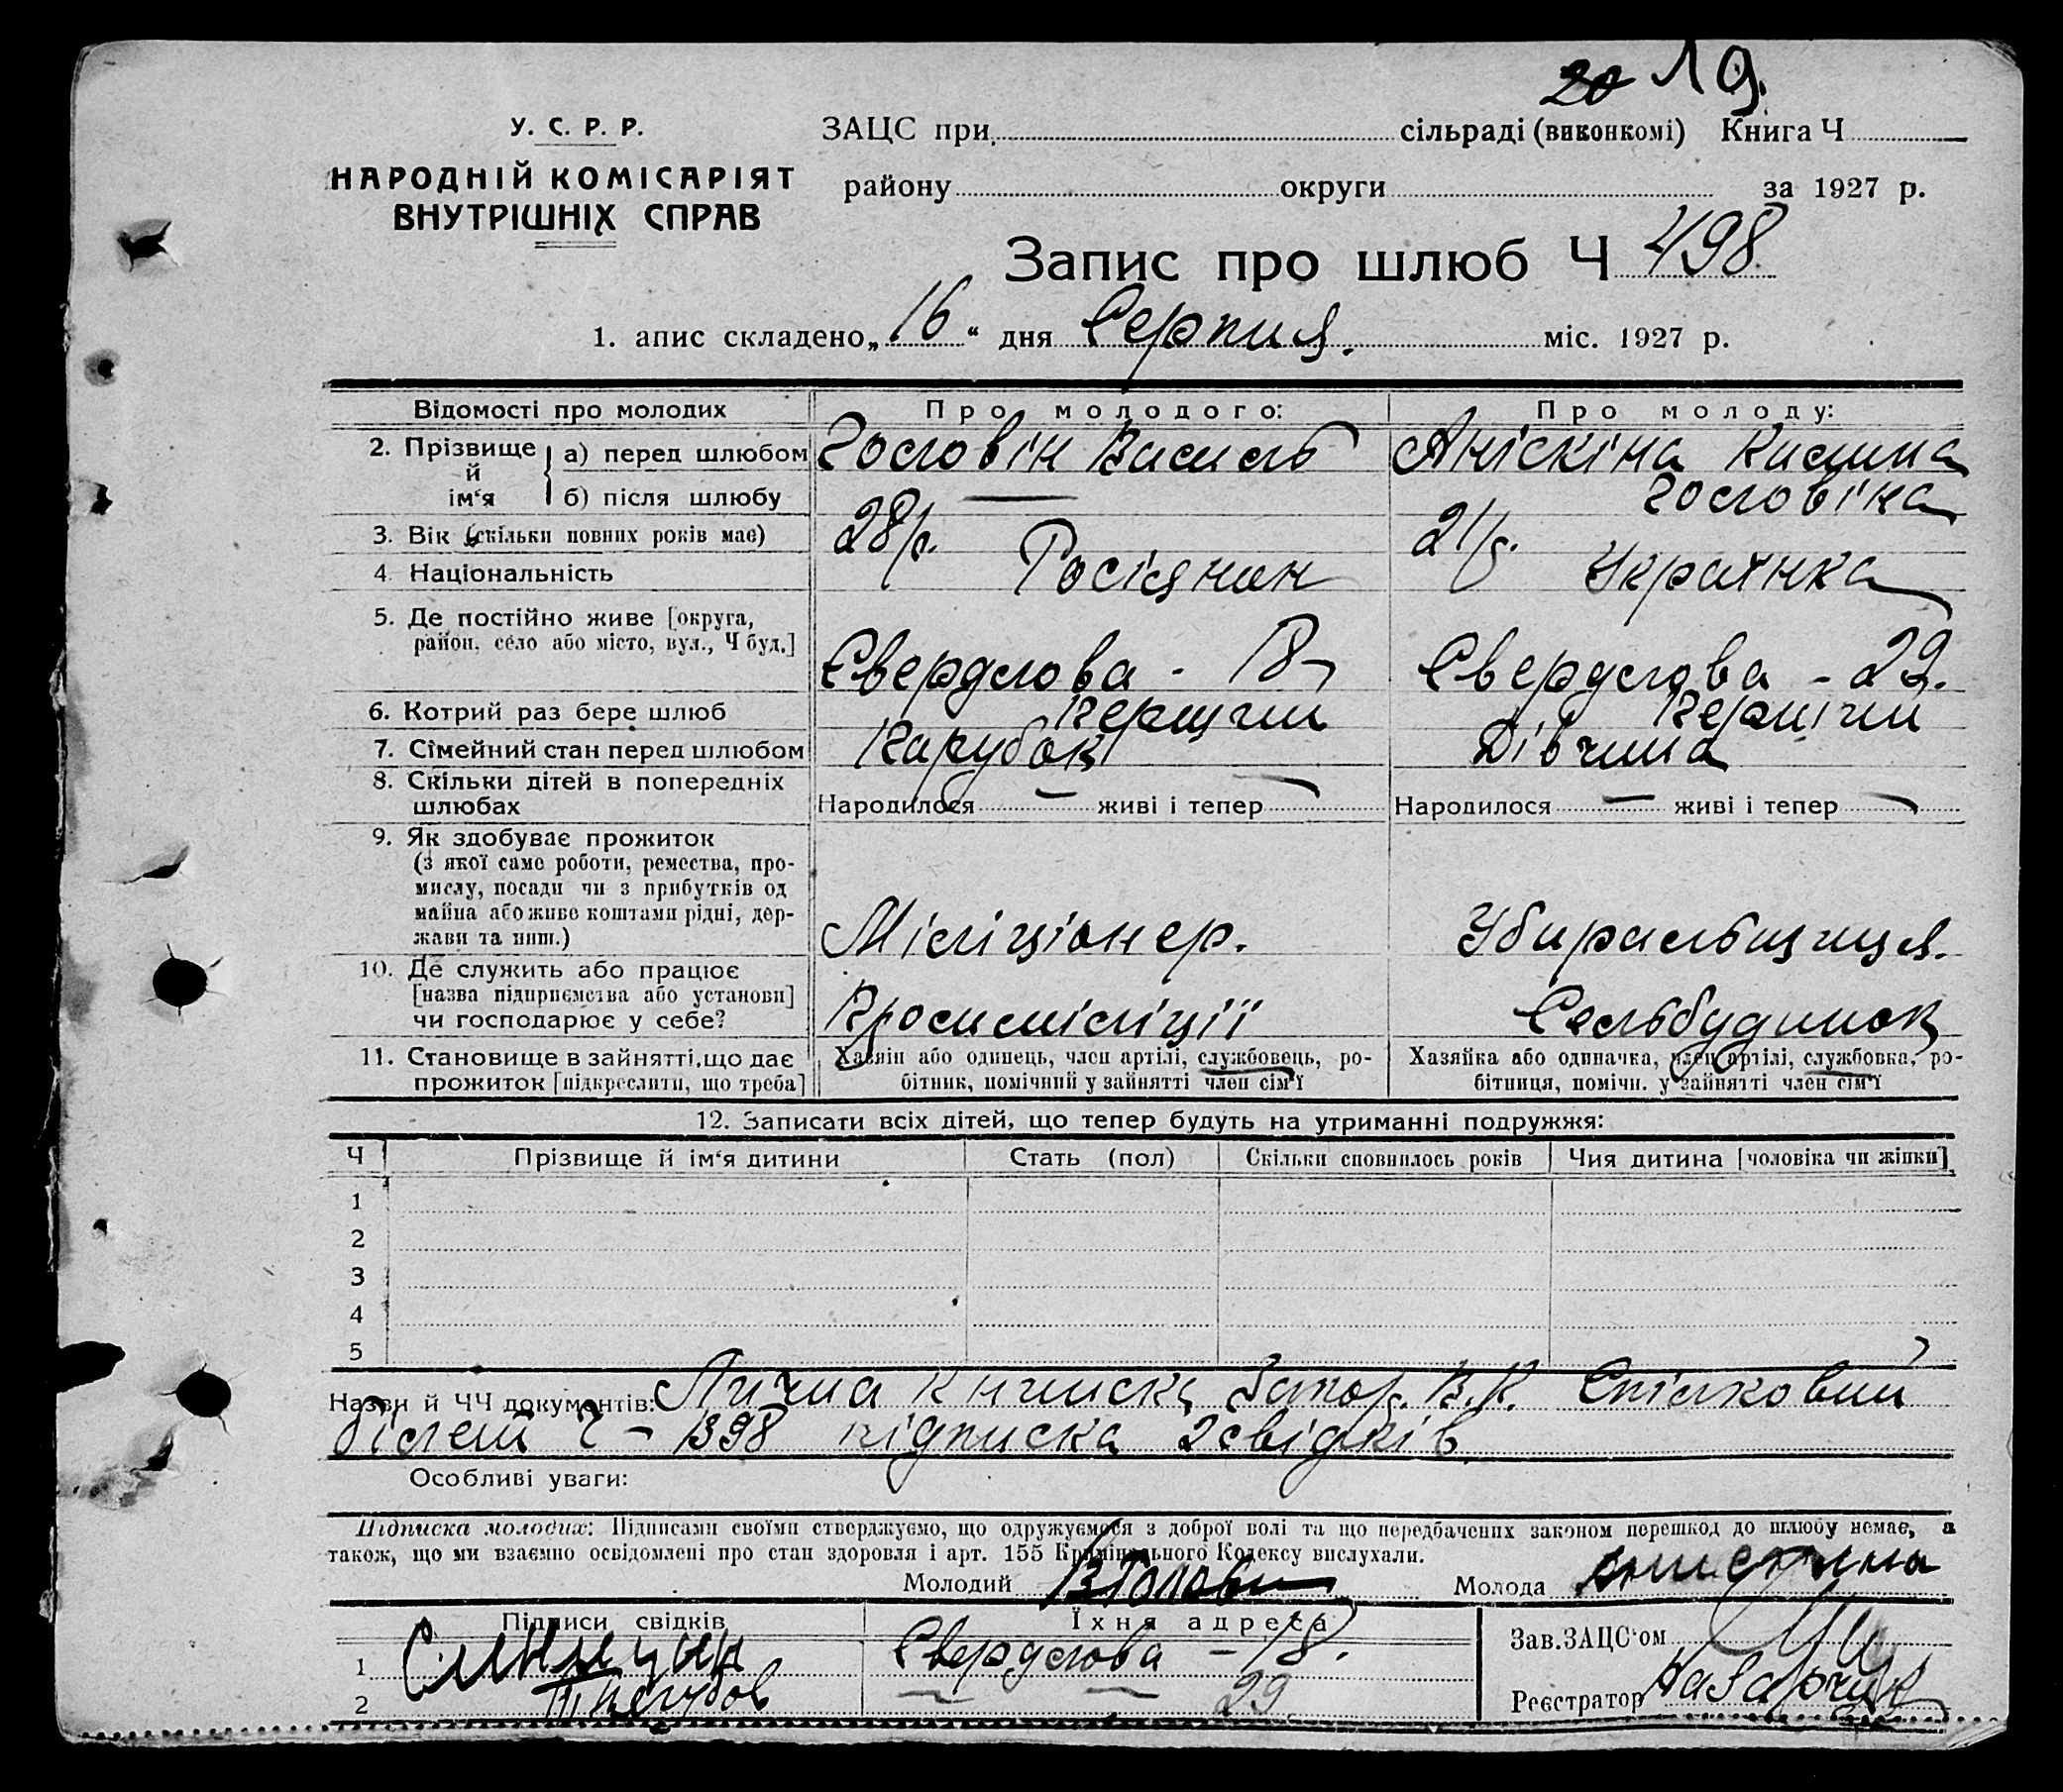 20 19.
У. С. Р. Р.
НАРОДНІЙ КОМІСАРІЯТ
ВНУТРІШНІХ СПРАВ
ЗАЦС при сільраді (виконкомі) Книга Ч
району округи за 1927 р.
Запис про шлюб Ч 498
1. апис складено „16“ дня Серпня. міс. 1927 р.
Відомості про молодих Про молодого: Про молоду:
2. Прізвище й ім‘я
а) перед шлюбом Головін Василь Аніскіна
б) після шлюбу — Головіна
3. Вік (скільки повних років має) 28 р. 21 р.
4. Національність Росіянин Українка
5. Де постійно живе [округа,
район, село або місто, вул., Ч буд.] Свердлова - 18 Свердлова - 29.
6. Котрий раз бере шлюб Перший Перший
7. Сімейний стан перед шлюбом Парубок Дівчина
8. Скільки дітей в попередніх
шлюбах Народилося — живі і тепер — Народилося — живі і тепер —
9. Як здобуває прожиток
(з якої саме роботи, ремества, про-
мислу, посади чи з прибутків од
майна або живе коштами рідні, дер-
жави та инш.) Міліціонер. Убиральщиця.
10. Де служить або працює
[назва підприємства або установи]
чи господарює у себе? Промміліції Сельбудинок
11. Становище в зайнятті, що дає
прожиток [підкреслити, що треба]
Хазяїн або одинець, член артілі, службовець, ро-
бітник, помічний у зайнятті член сім'ї
Хазяйка або одиначка, член артілі, службовка, ро-
бітниця, помічн. у зайнятті член сім'ї
12. Записати всіх дітей, що тепер будуть на утриманні подружжя:
Ч Прізвище й ім‘я дитини Стать (пол) Скільки сповнилось років Чия дитина [чоловіка чи жінки]
1
2
3
4
5
Назви й ЧЧ документів: Лична книжка В.К. Спілковий
білет Ч – 1398 підписка 2 свідків
Особливі уваги:
Підписка молодих: Підписами своїми стверджуємо, що одружуємося з доброї волі та що передбачених законом перешкод до шлюбу немає, а
також, що ми взаємно освідомлені про стан здоровля і арт. 155 Кримінального Кодексу вислухали.
Молодий ВГолови Молода Анискина
Підписи свідків Їхня адреса
1 Свердлова – 18.
2 — — 29
Зав. ЗАЦС‘ом
Реєстратор Назарчук